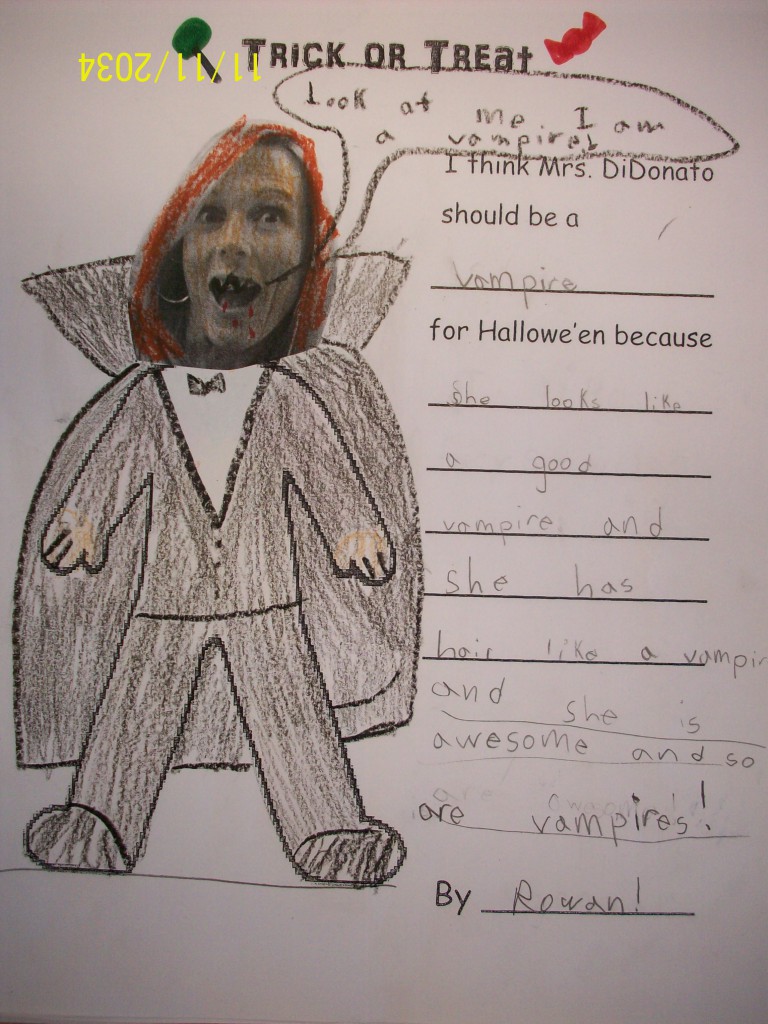 TRICK OR TREAT
11/11/2034
Look at me I am
a vampire!
I think Mrs. DiDonato
should be a
vampire
for Hallowe'en because
she looks like
a good
vampire and
she has
hair like a vampir
and she is
awesome and so
are vampires!
By Rowan!